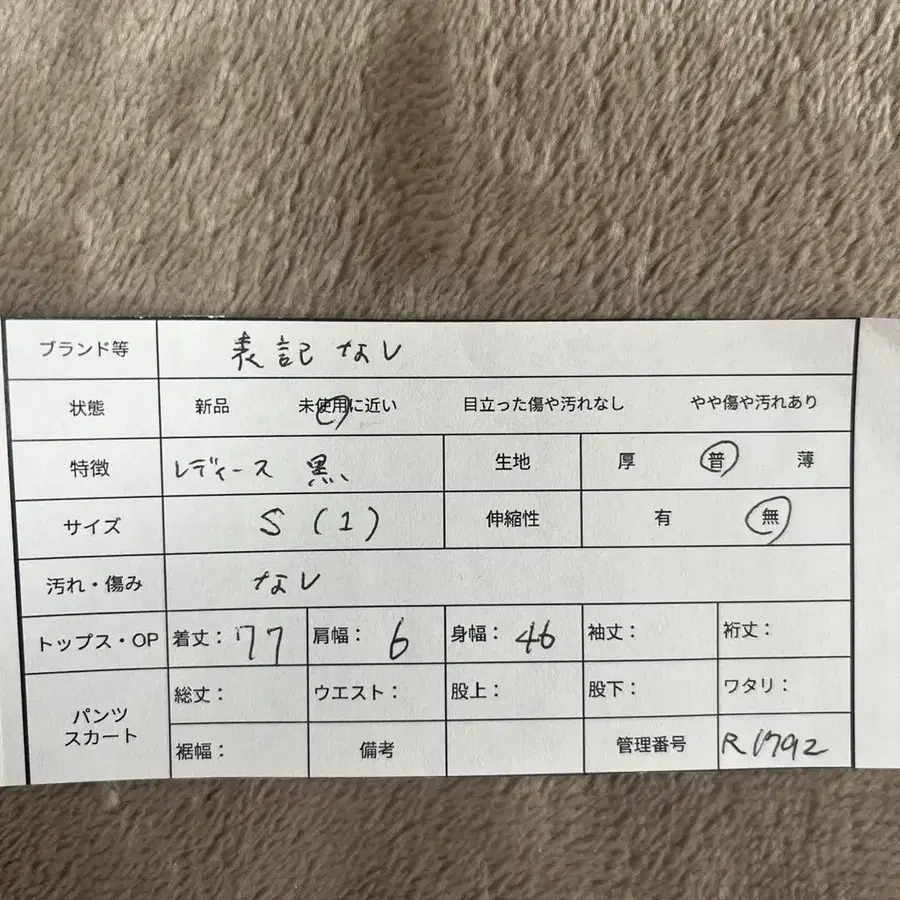 ブランド等 表記なし
状態 新品 未使用に近い 目立った傷や汚れなし やや傷や汚れあり
特徴 レディース 黒 生地 厚 普 薄
サイズ S (1) 伸縮性 有 無
汚れ・傷み なし
トップス・OP 着丈: 77 肩幅: 6 身幅: 46 袖丈: 裄丈:
パンツ スカート 総丈: ウエスト: 股上: 股下: ワタリ:
裾幅: 備考 管理番号 R1792